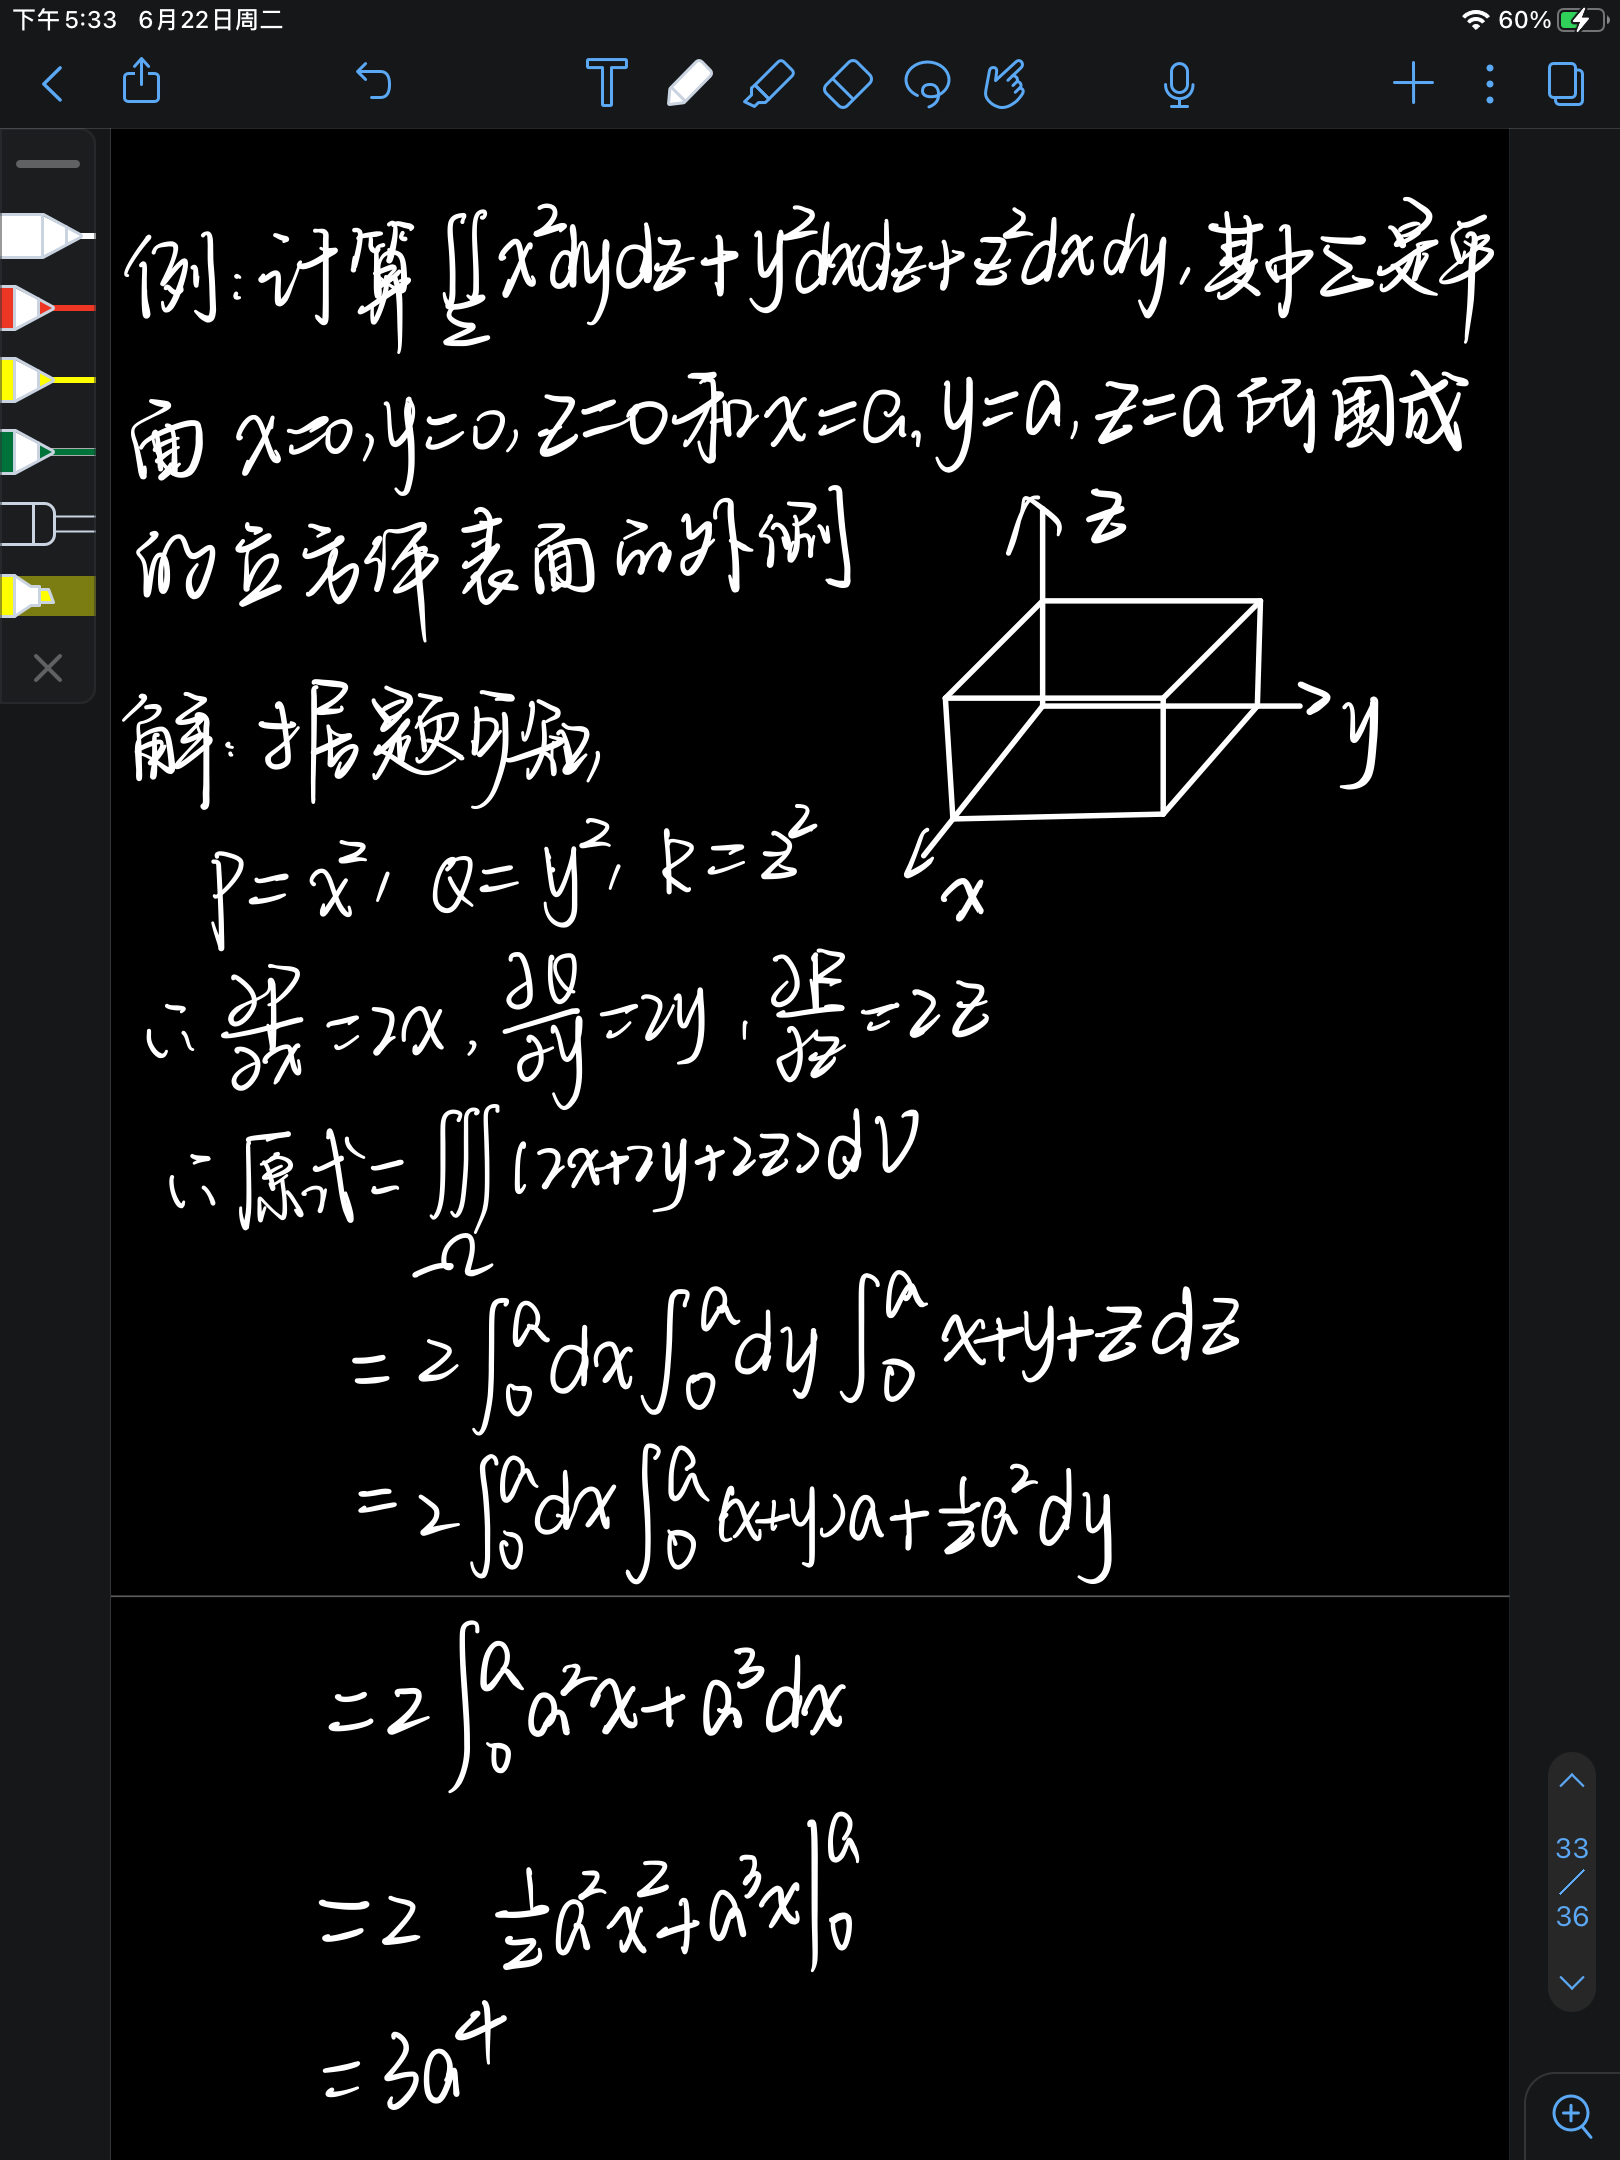 下午5:33 6月22日周二
60%
例:计算∬_Σ x²dydz+y²dxdz+z²dxdy,其中Σ是平
面 x=0,y=0,z=0和x=a,y=a,z=a所围成
的立方体表面的外侧
z
y
x
解:据题可知,
P=x², Q=y², R=z²
∵ ∂P/∂x=2x, ∂Q/∂y=2y, ∂R/∂z=2z
∴原式=∭_Ω(2x+2y+2z)dV
=2∫₀ᵃdx∫₀ᵃdy∫₀ᵃ x+y+z dz
=2∫₀ᵃdx∫₀ᵃ(x+y)a+½a²dy
=2∫₀ᵃ a²x+a³dx
=2 ½a²x²+a³x|₀ᵃ
=3a⁴
33
/
36